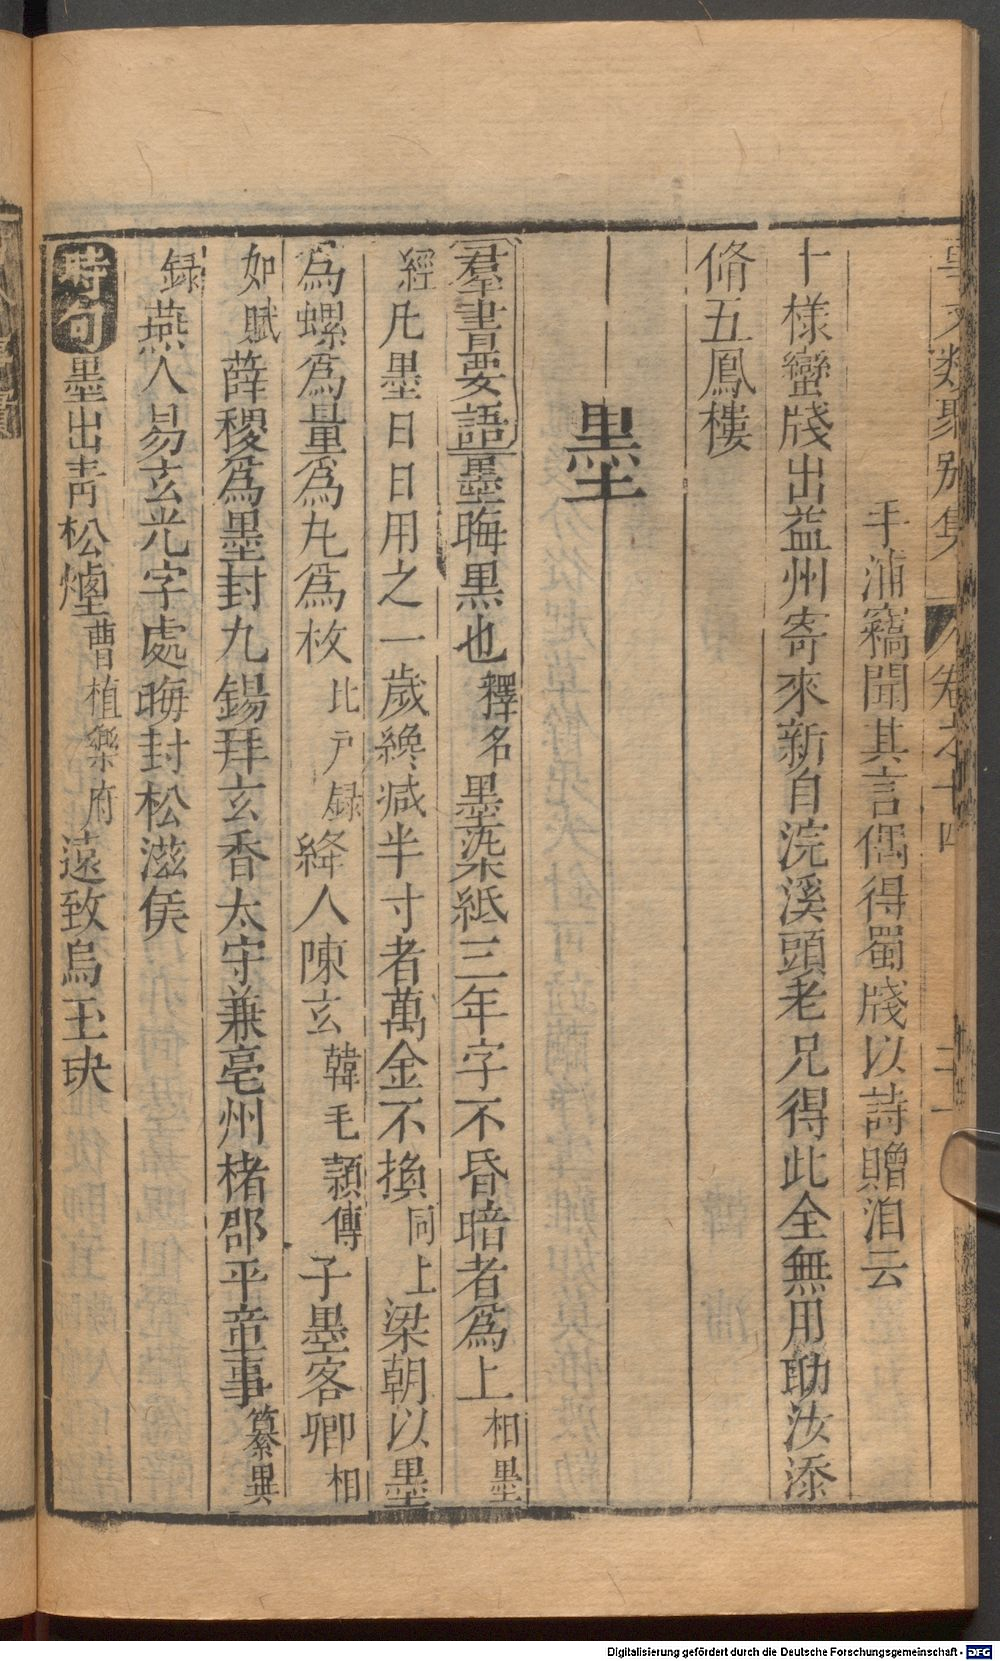 事文類聚別集 卷之十四 二
手浦竊聞其言偶得蜀牋以詩贈洎云
十樣蠻牋出益州寄來新自浣溪頭老兄得此全無用助汝添
脩五鳳樓
墨
羣書要語墨晦黑也釋名墨染紙三年字不昏暗者爲上相墨
經凡墨日日用之一歲纔減半寸者萬金不換同上梁朝以墨
爲螺爲量爲丸爲枚比戶録絳人陳玄韓毛頴傳子墨客卿相
如賦薛稷爲墨封九錫拜玄香太守兼亳州楮郡平童事纂異
録燕人易玄光字處晦封松滋侯
詩句墨出青松煙曹植樂府遠致烏玉玦
Digitalisierung gefördert durch die Deutsche Forschungsgemeinschaft - DFG